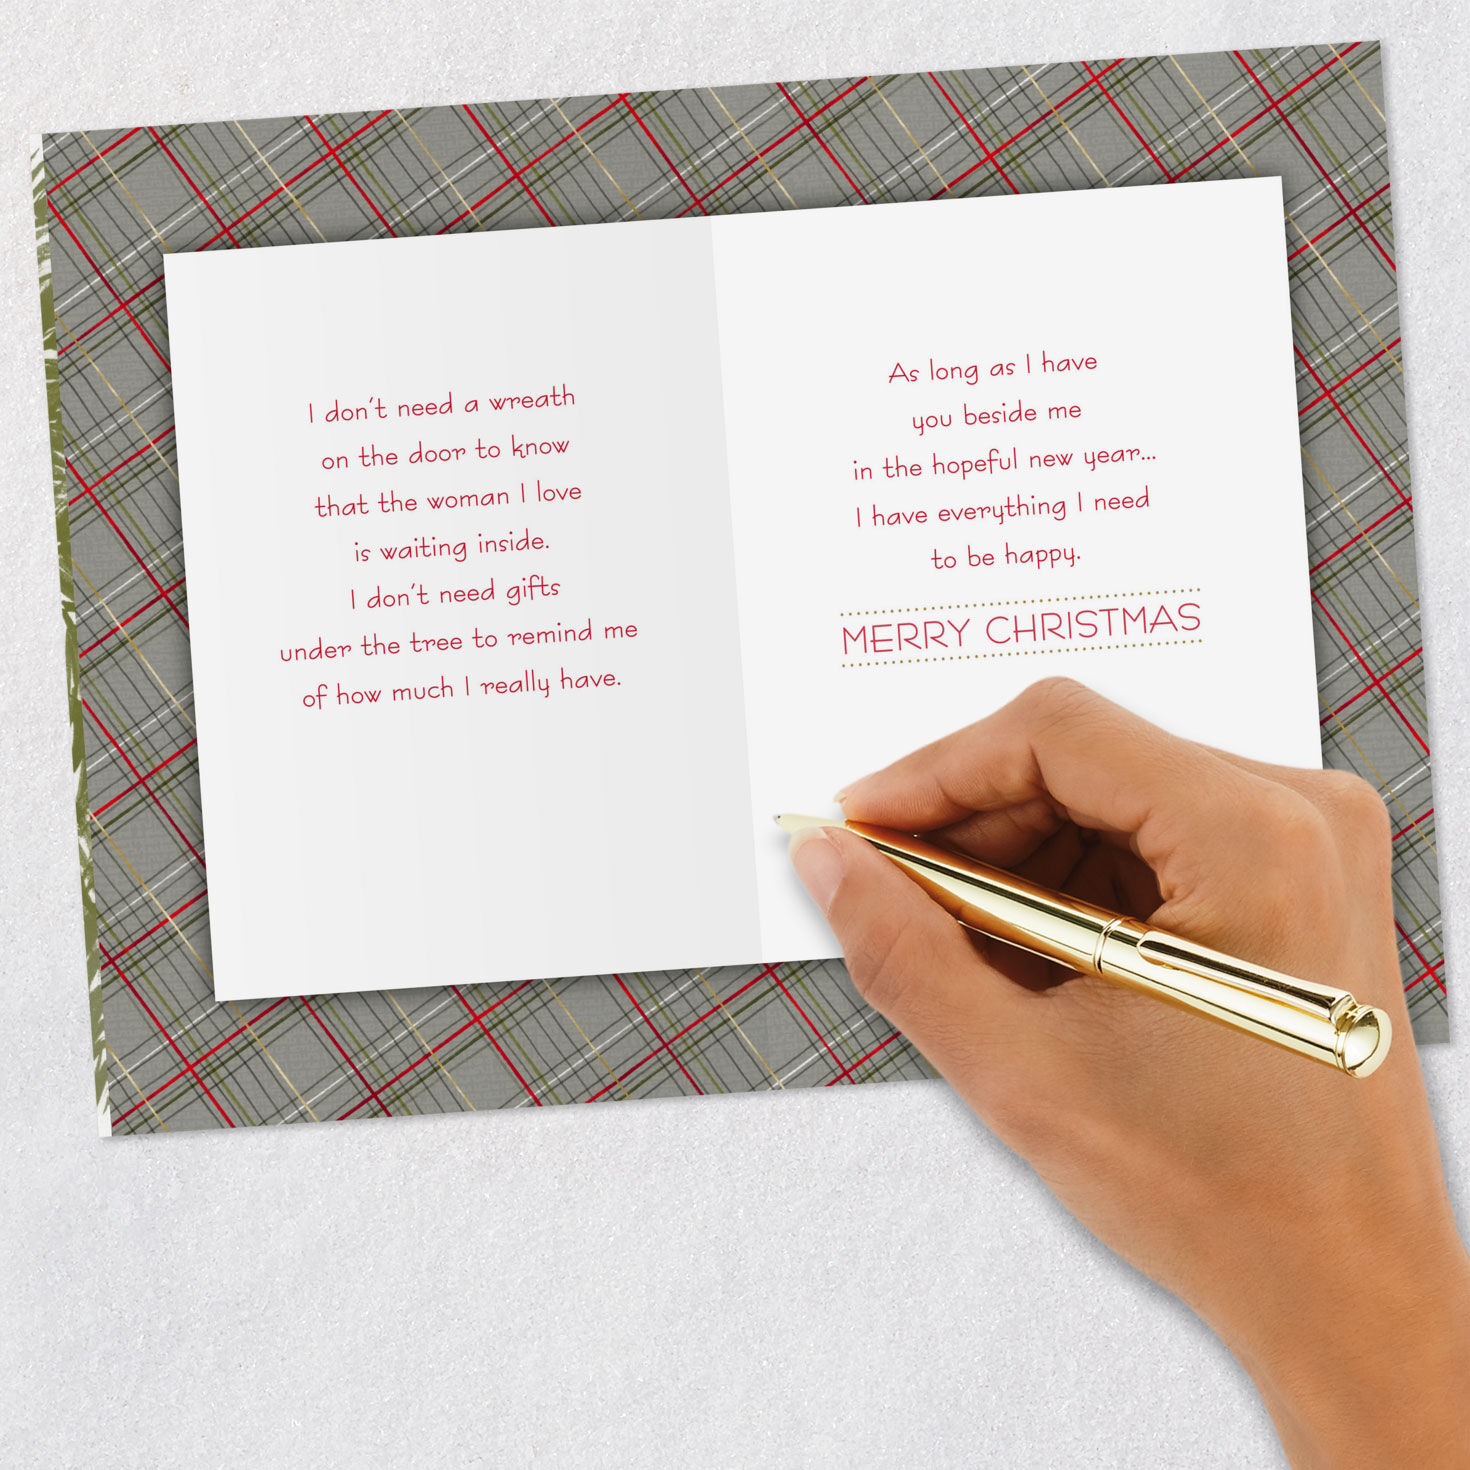 I don't need a wreath
on the door to know
that the woman I love
is waiting inside.
I don't need gifts
under the tree to remind me
of how much I really have.
As long as I have
you beside me
in the hopeful new year...
I have everything I need
to be happy.
MERRY CHRISTMAS